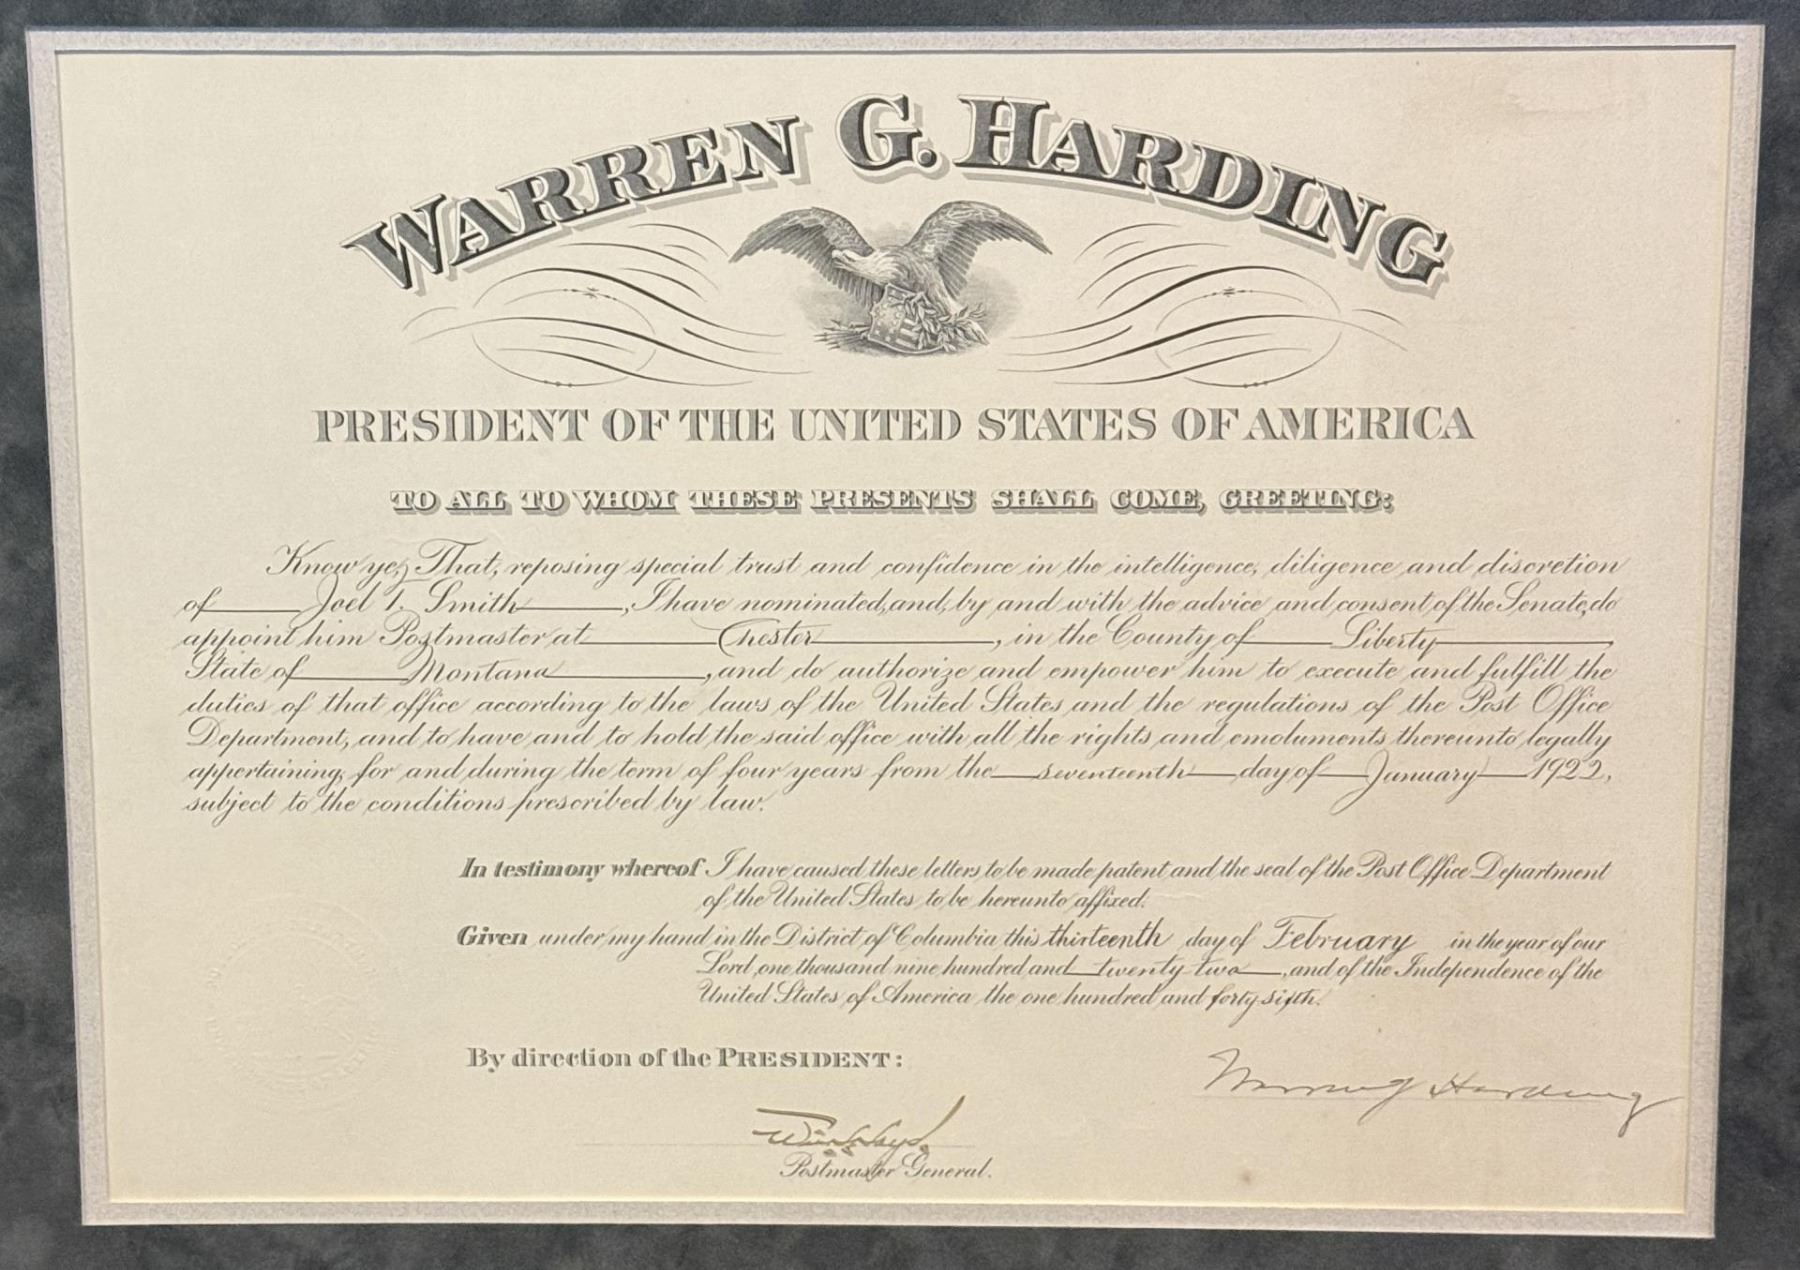 WARREN G. HARDING
PRESIDENT OF THE UNITED STATES OF AMERICA
TO ALL TO WHOM THESE PRESENTS SHALL COME, GREETING:
Know ye, That, reposing special trust and confidence in the intelligence, diligence and discretion
of Joel T. Smith, I have nominated, and, by and with the advice and consent of the Senate, do
appoint him Postmaster at Chester, in the County of Liberty,
State of Montana, and do authorize and empower him to execute and fulfill the
duties of that office according to the laws of the United States and the regulations of the Post Office
Department, and to have and to hold the said office with all the rights and emoluments thereunto legally
appertaining, for and during the term of four years from the seventeenth day of January 1922,
subject to the conditions prescribed by law.
In testimony whereof I have caused these letters to be made patent and the seal of the Post Office Department
of the United States to be hereunto affixed.
Given under my hand in the District of Columbia this thirteenth day of February in the year of our
Lord one thousand nine hundred and twenty-two, and of the Independence of the
United States of America the one hundred and forty-sixth.
By direction of the PRESIDENT:
Warren G Harding
Will H. Hays.
Postmaster General.